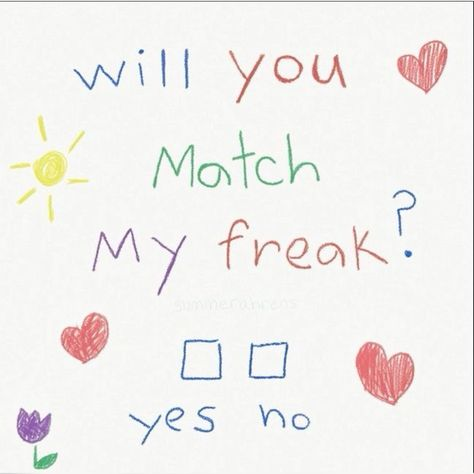 will you
Match
My freak?
summerahrens
yes no